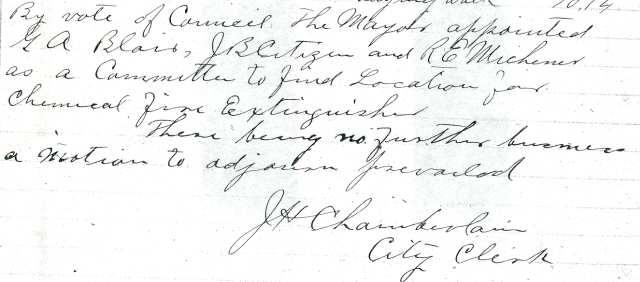 work 10.14
By vote of Council The Mayor appointed
G A Blair, J B Citizen and R E Michener
as a Committee to find Location for
Chemical Fire Extinguisher
There being no further business
a motion to adjourn prevailed
J H Chamberlain
City Clerk